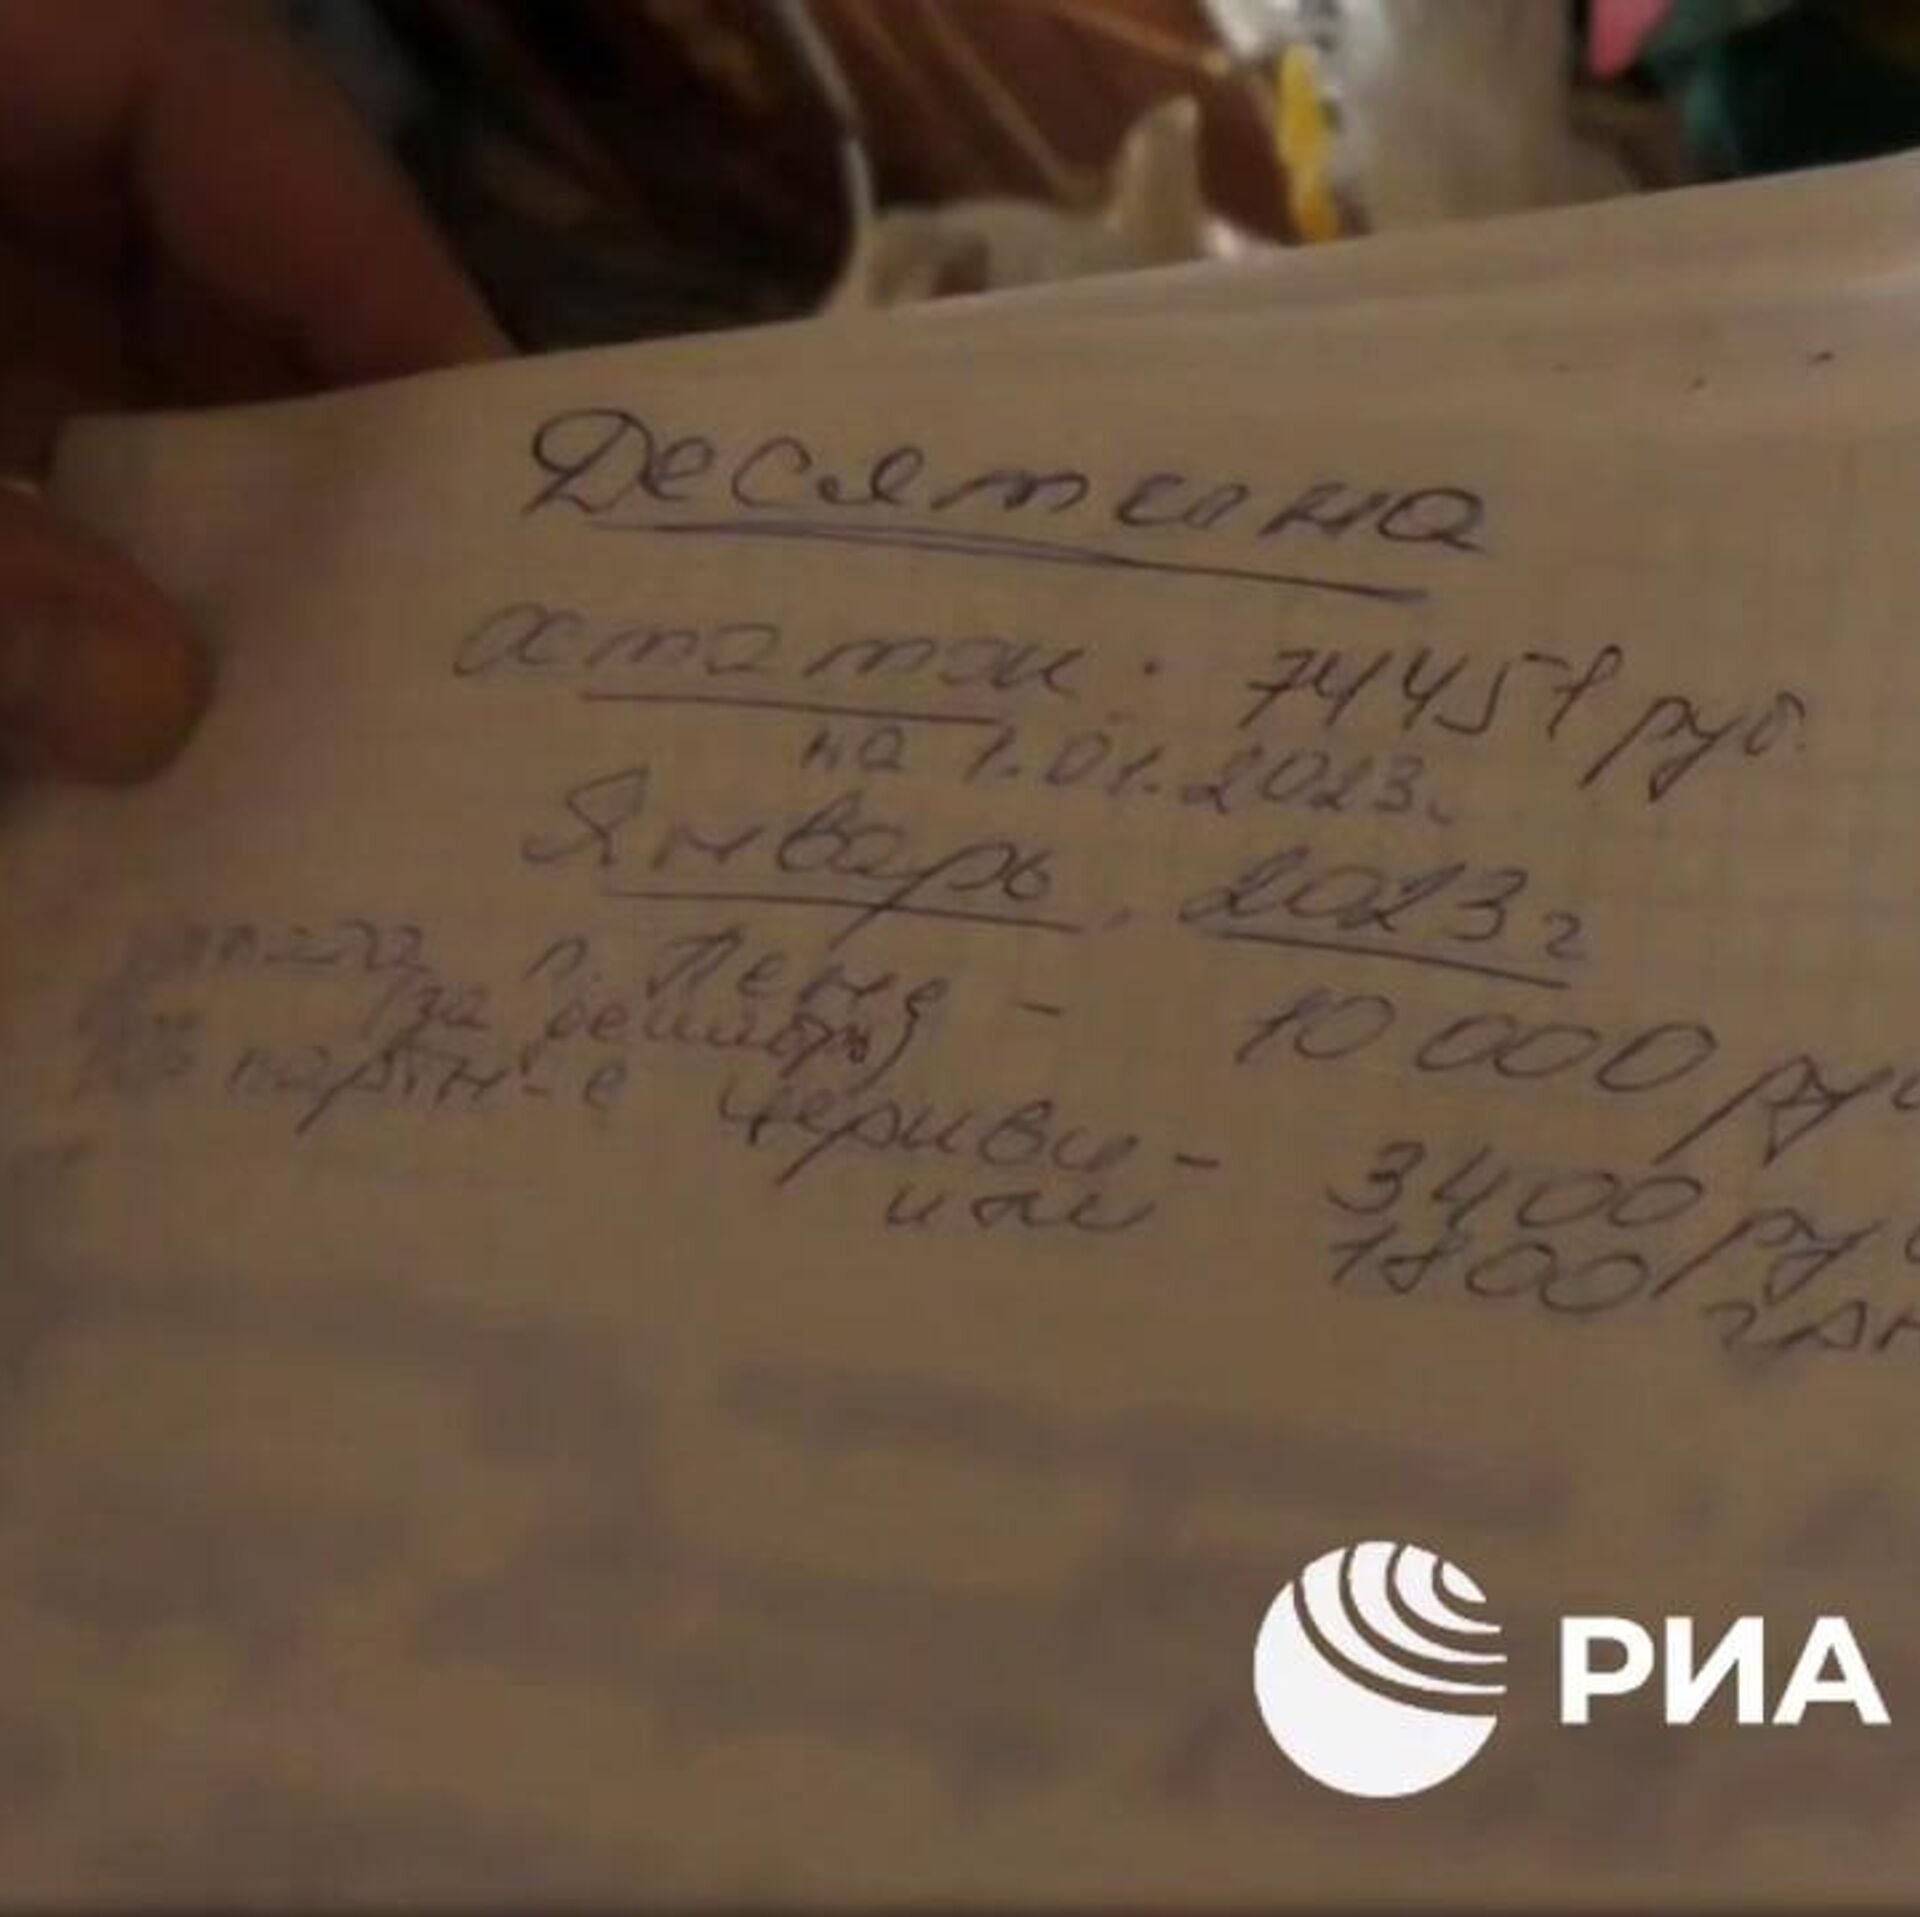 Десятина
остаток: 74451 руб.
на 1.01.2023.
Январь, 2023г
п. Лена - 10 000 руб
(за
Черкви - 3400 руб
или 1800 грн
РИА